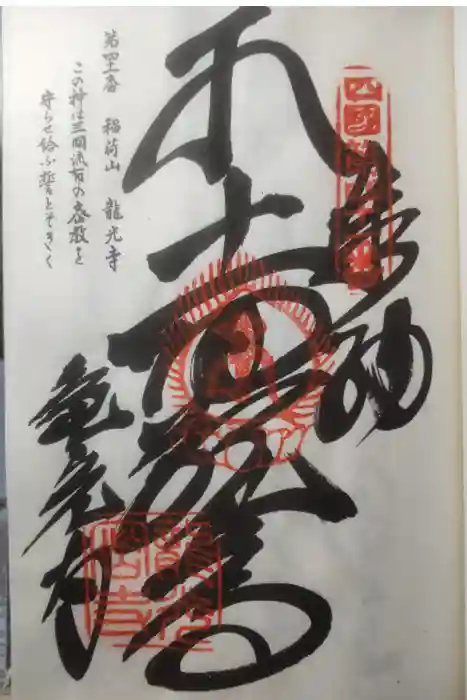 奉納
四國第四十一番
龍光寺
第四十一番 稲荷山 龍光寺
この神は三国流布の密教を
守らせ給ふ誓とぞきく